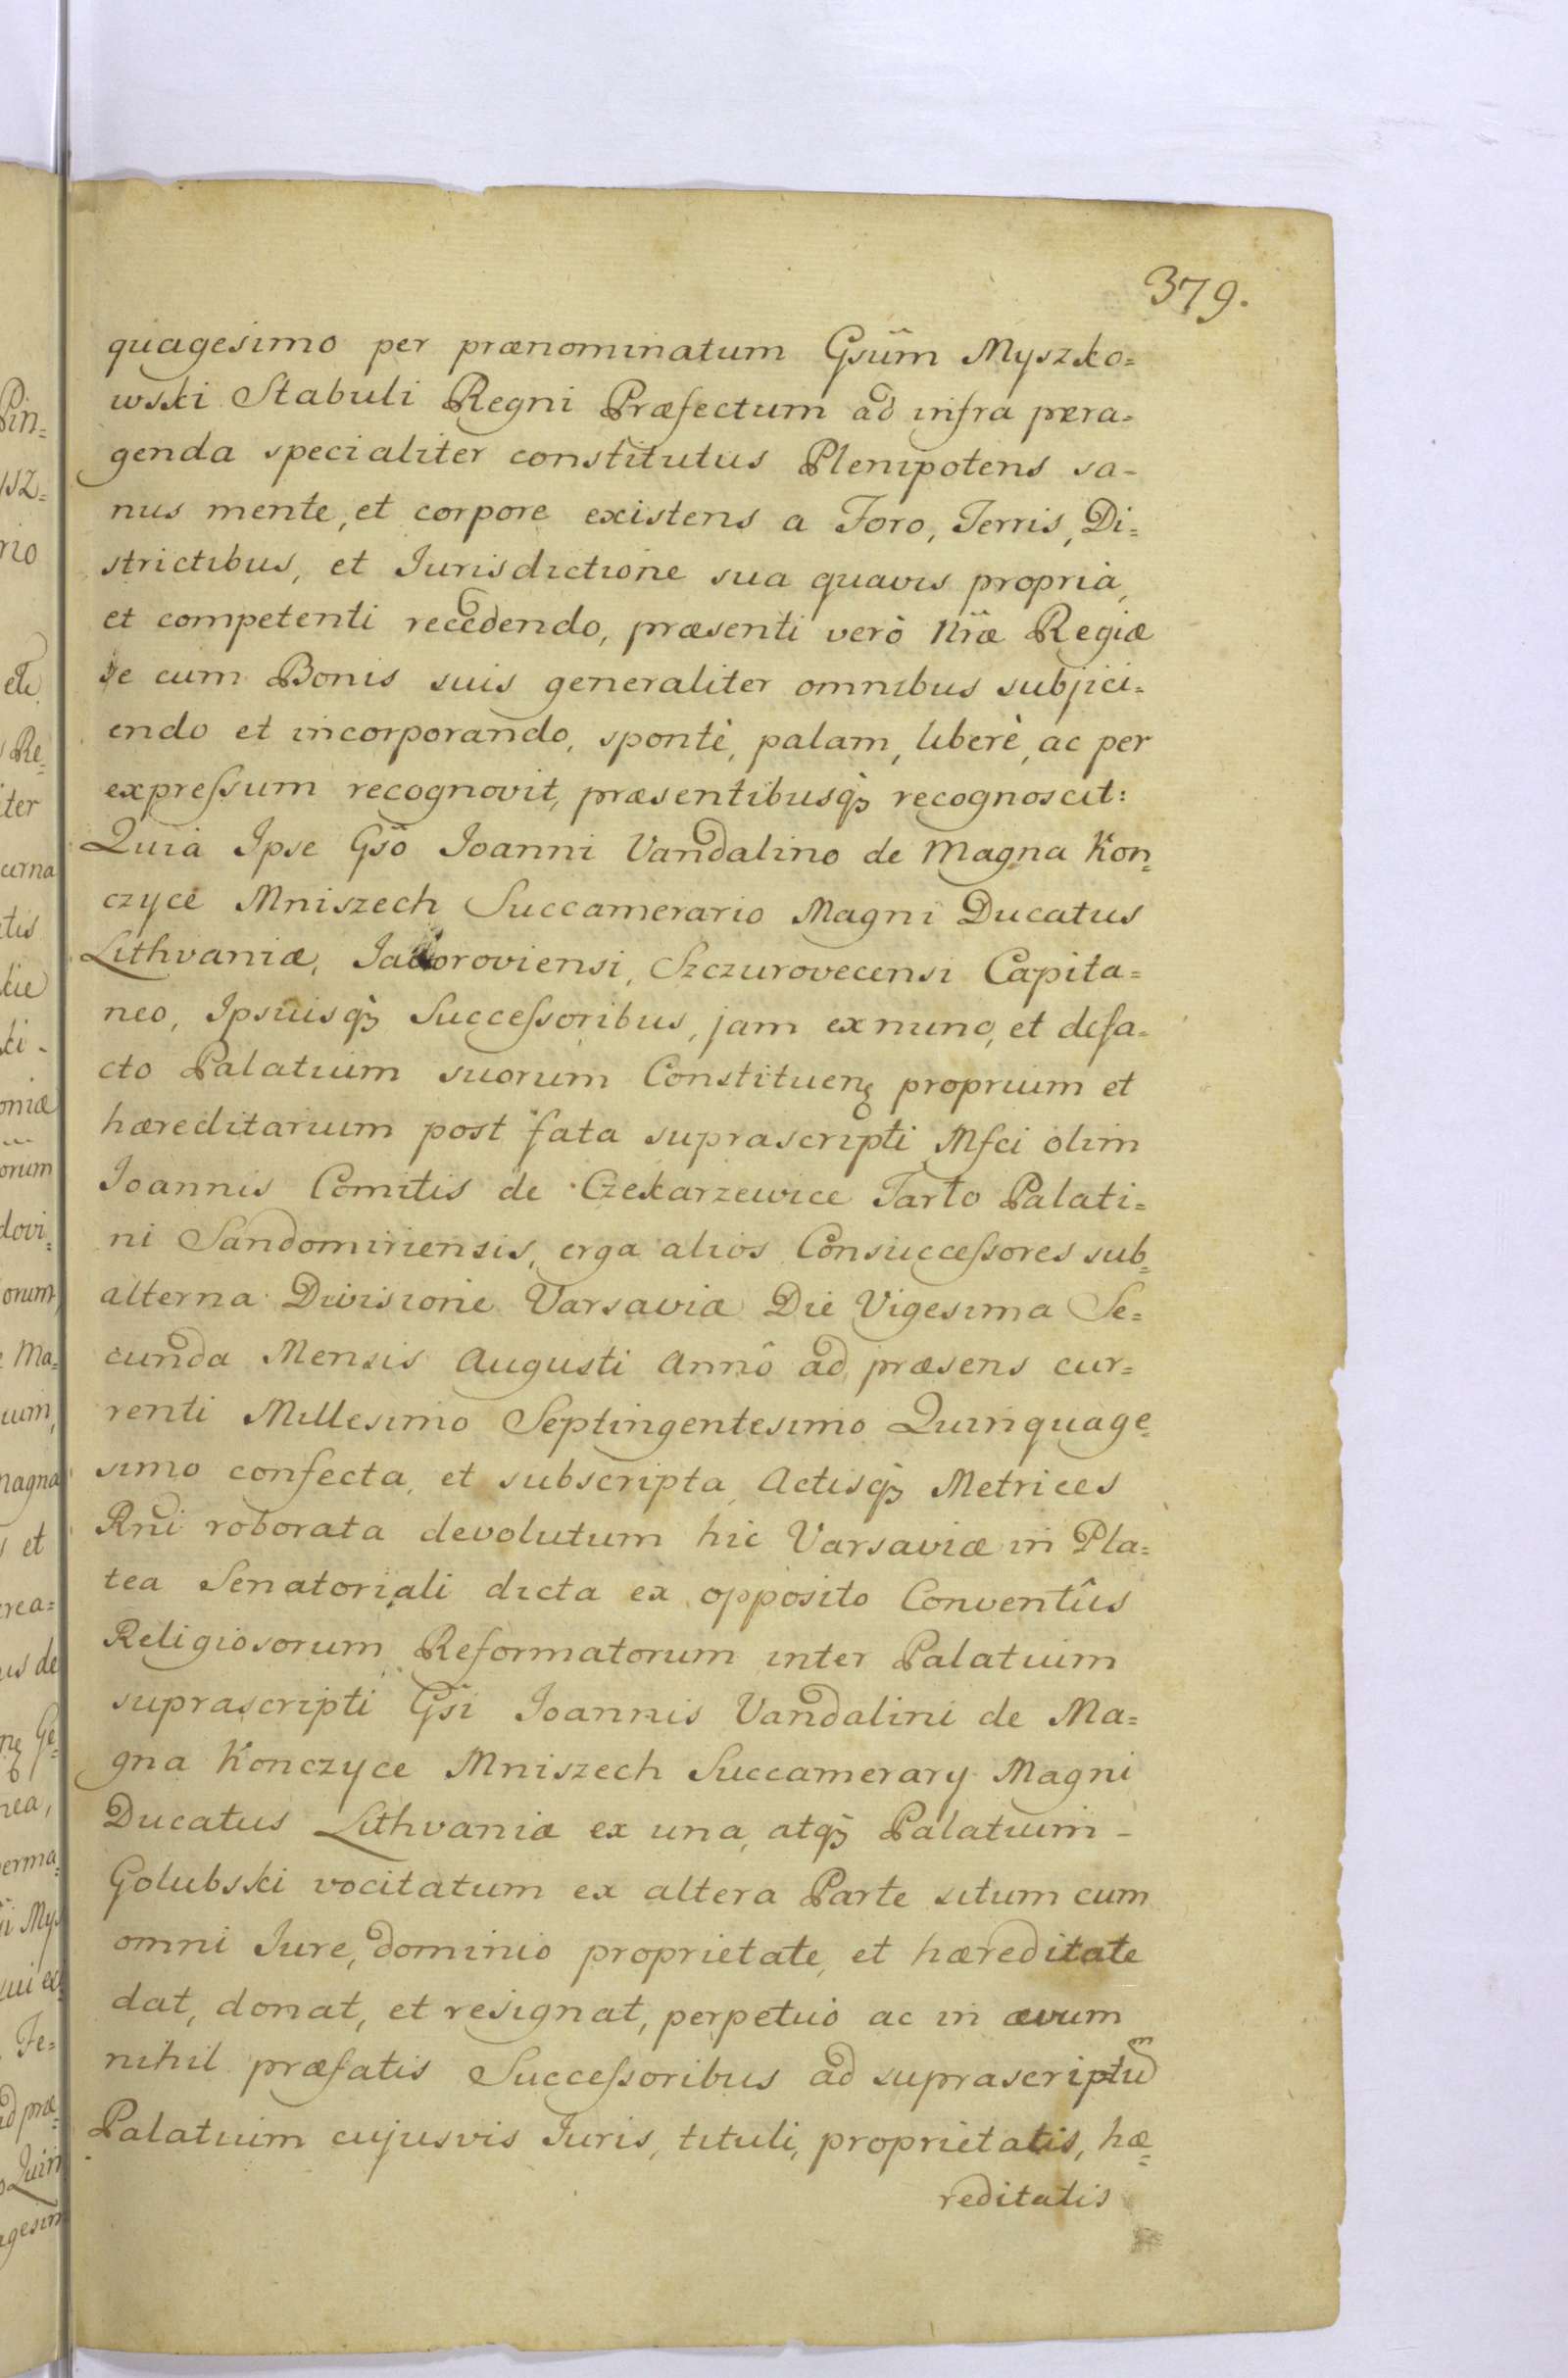 379.
quagesimo per prænominatum Gsum Myszko=
wski Stabuli Regni Præfectum ad infra pera=
genda specialiter constitutus Plenipotens sa-
nus mente, et corpore existens a Foro, Terris, Di=
strictibus, et Jurisdictione sua quavis propria,
et competenti recedendo, præsenti verò Nræ Regiæ
se cum Bonis suis generaliter omnibus subjici=
endo et incorporando, spontè, palam, liberè, ac per
expressum recognovit, præsentibusq3 recognoscit:
Quia Ipse Gso Joanni Vandalino de Magna Kon=
czyce Mniszech Succamerario Magni Ducatus
Lithvaniæ, Javoroviensi, Szczurovecensi Capita=
neo, Ipsiusq3 Successoribus, jam ex nunc, et defa=
cto Palatium suorum Constituen proprium et
hæreditarium post fata suprascripti Mfci olim
Joannis Comitis de Czekarzewice Tarło Palati=
ni Sandomiriensis, erga alios Consuccessores sub=
alterna Divisione Varsaviæ Die Vigesima Se=
cunda Mensis Augusti Annô ad præsens cur=
renti Millesimo Septingentesimo Quinquage=
simo confecta, et subscripta, Actisq3 Metrices
Rni roborata devolutum hic Varsaviæ in Pla=
tea Senatoriali dicta ex opposito Conventûs
Religiosorum Reformatorum inter Palatium
suprascripti Gsi Joannis Vandalini de Ma=
gna Konczyce Mniszech Succamerary Magni
Ducatus Lithvaniæ ex una, atq3 Palatium -
Golubski vocitatum ex altera Parte situm cum
omni Jure, dominio proprietate, et hæreditate
dat, donat, et resignat, perpetuo ac in ævum
nihil præfatis Successoribus ad suprascriptum
Palatium cujusvis Juris, tituli, proprietatis, hæ=
reditatis